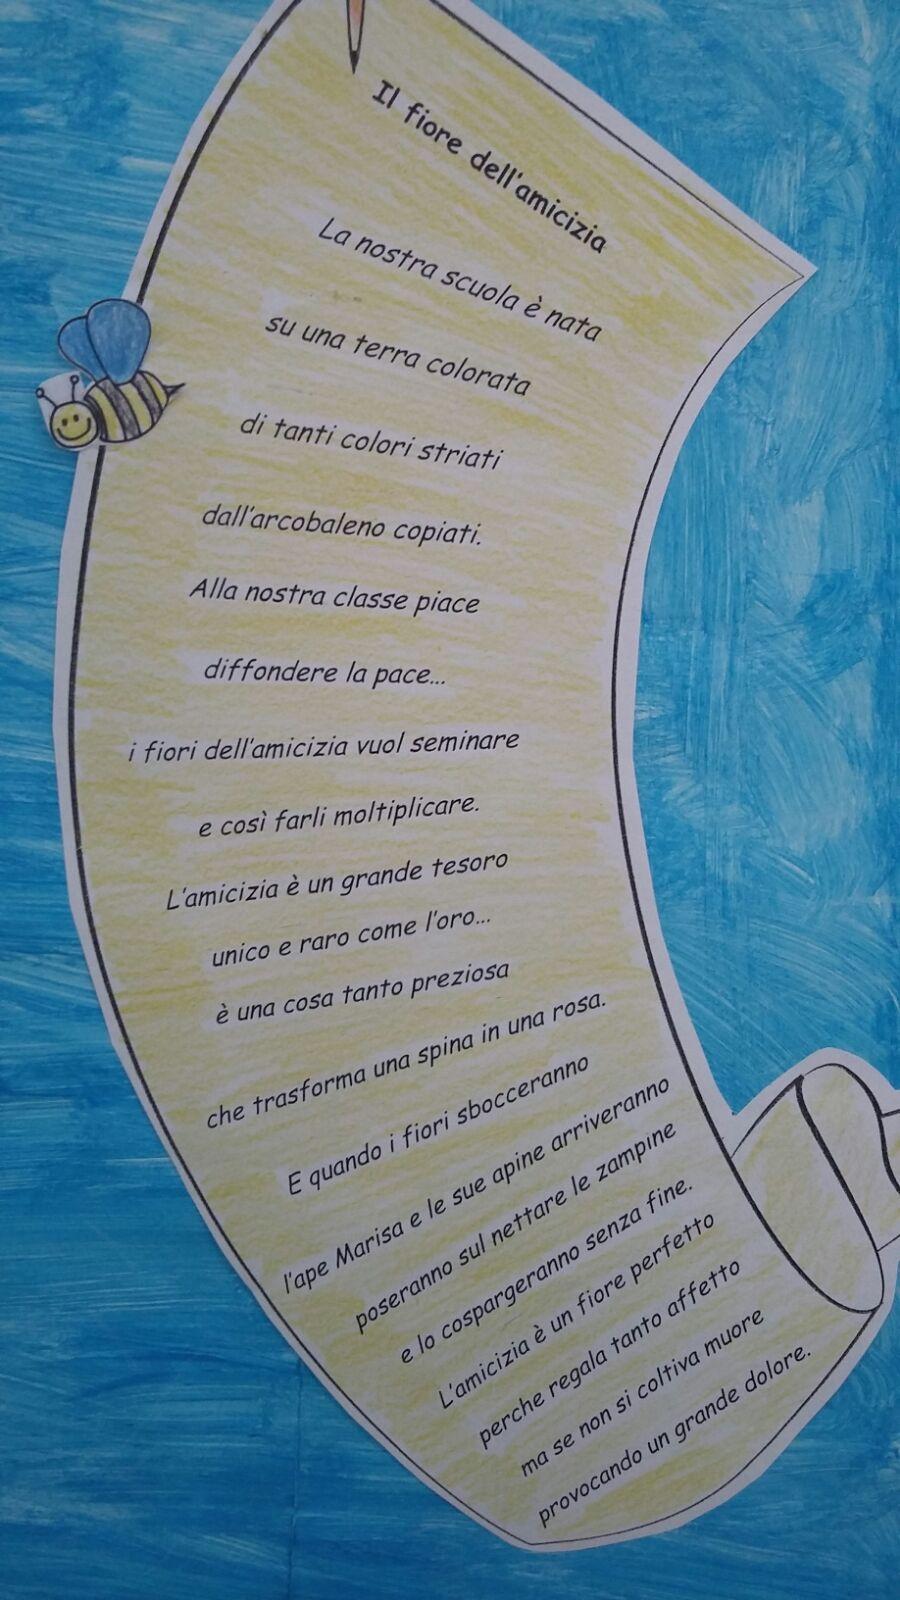 Il fiore dell'amicizia
La nostra scuola è nata
su una terra colorata
di tanti colori striati
dall'arcobaleno copiati.
Alla nostra classe piace
diffondere la pace...
i fiori dell'amicizia vuol seminare
e così farli moltiplicare.
L'amicizia è un grande tesoro
unico e raro come l'oro...
è una cosa tanto preziosa
che trasforma una spina in una rosa.
E quando i fiori sbocceranno
l'ape Marisa e le sue apine arriveranno
poseranno sul nettare le zampine
e lo cospargeranno senza fine.
L'amicizia è un fiore perfetto
perche regala tanto affetto
ma se non si coltiva muore
provocando un grande dolore.